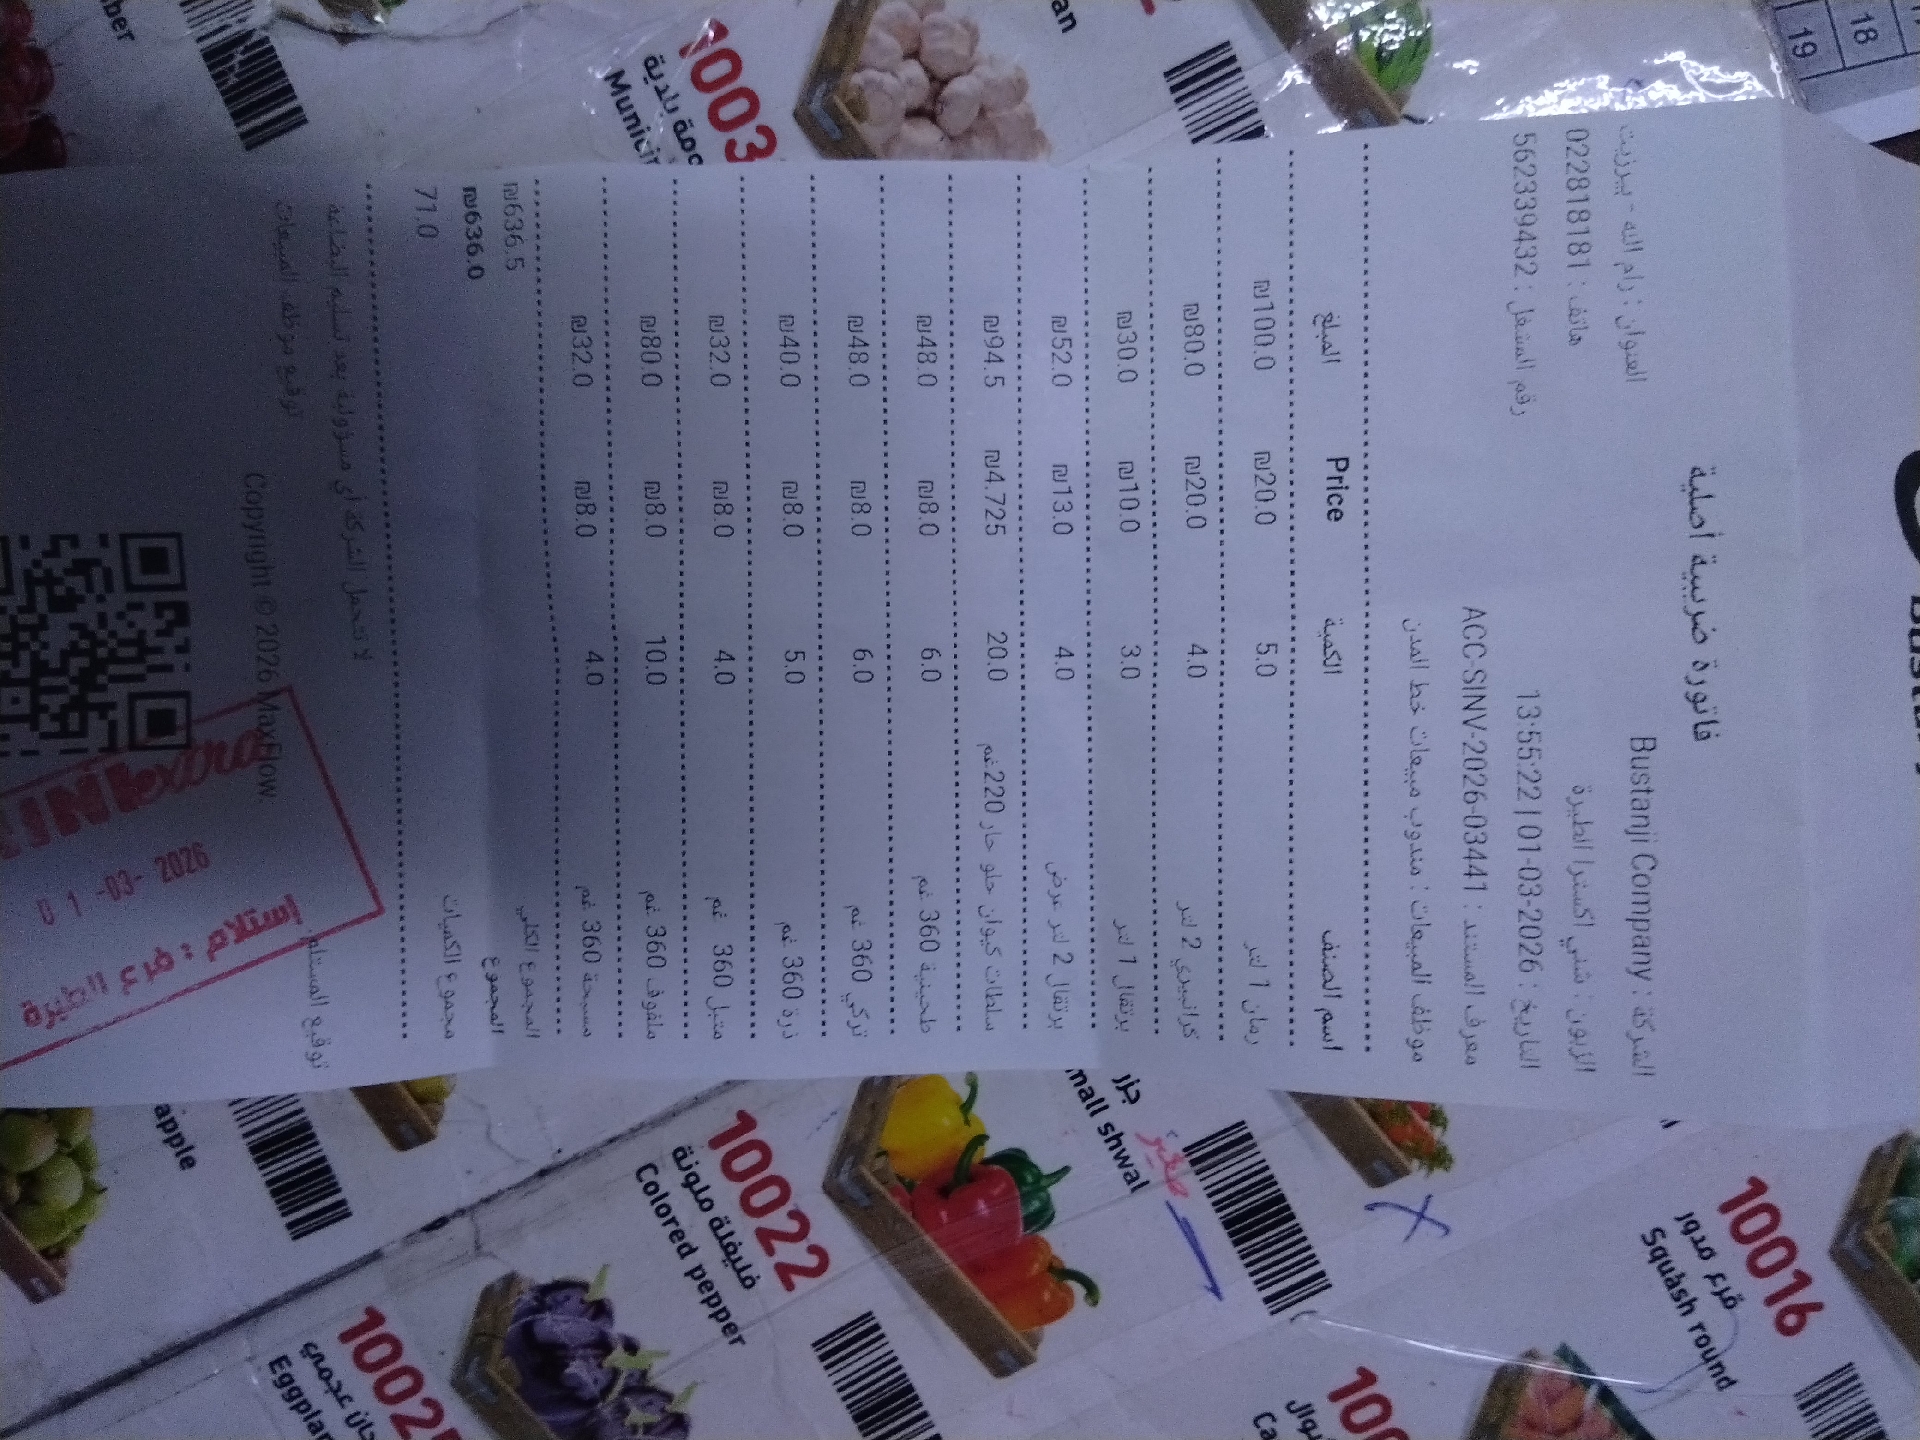 فاتورة ضريبية أصلية
العنوان : رام الله - بيرزيت
هاتف : 022818181
رقم المشغل : 562339432
الشركة : Bustanji Company
الزبون : شلي اكسترا الطيرة
التاريخ : 01-03-2026 | 13:55:22
معرف المستند : ACC-SINV-2026-03441
موظف المبيعات : مندوب مبيعات خط المدن
اسم الصنف الكمية Price المبلغ
رمان 1 لتر 5.0 ₪20.0 ₪100.0
كرانبيري 2 لتر 4.0 ₪20.0 ₪80.0
برتقال 1 لتر 3.0 ₪10.0 ₪30.0
برتقال 2 لتر عرض 4.0 ₪13.0 ₪52.0
سلطات كيوان حلو حار 220غم 20.0 ₪4.725 ₪94.5
طحينية 360 غم 6.0 ₪8.0 ₪48.0
تركي 360 غم 6.0 ₪8.0 ₪48.0
ذرة 360 غم 5.0 ₪8.0 ₪40.0
متبل 360 غم 4.0 ₪8.0 ₪32.0
ملفوف 360 غم 10.0 ₪8.0 ₪80.0
مسبحة 360 غم 4.0 ₪8.0 ₪32.0
المجموع الكلي ₪636.5
المجموع ₪636.0
مجموع الكميات 71.0
لا تتحمل الشركة أي مسؤولية بعد تسليم البضاعة
توقيع المستلم
توقيع موظف المبيعات
Copyright © 2026 MaxFlow.
استلام : فرع الطيرة
01-03-2026
18
19
1003
10022
فليفلة ملونة
Colored pepper
10016
قرع مدور
Squash round
جزر
mall shwal
صغير
apple
1002
Eggplan
100
Ca